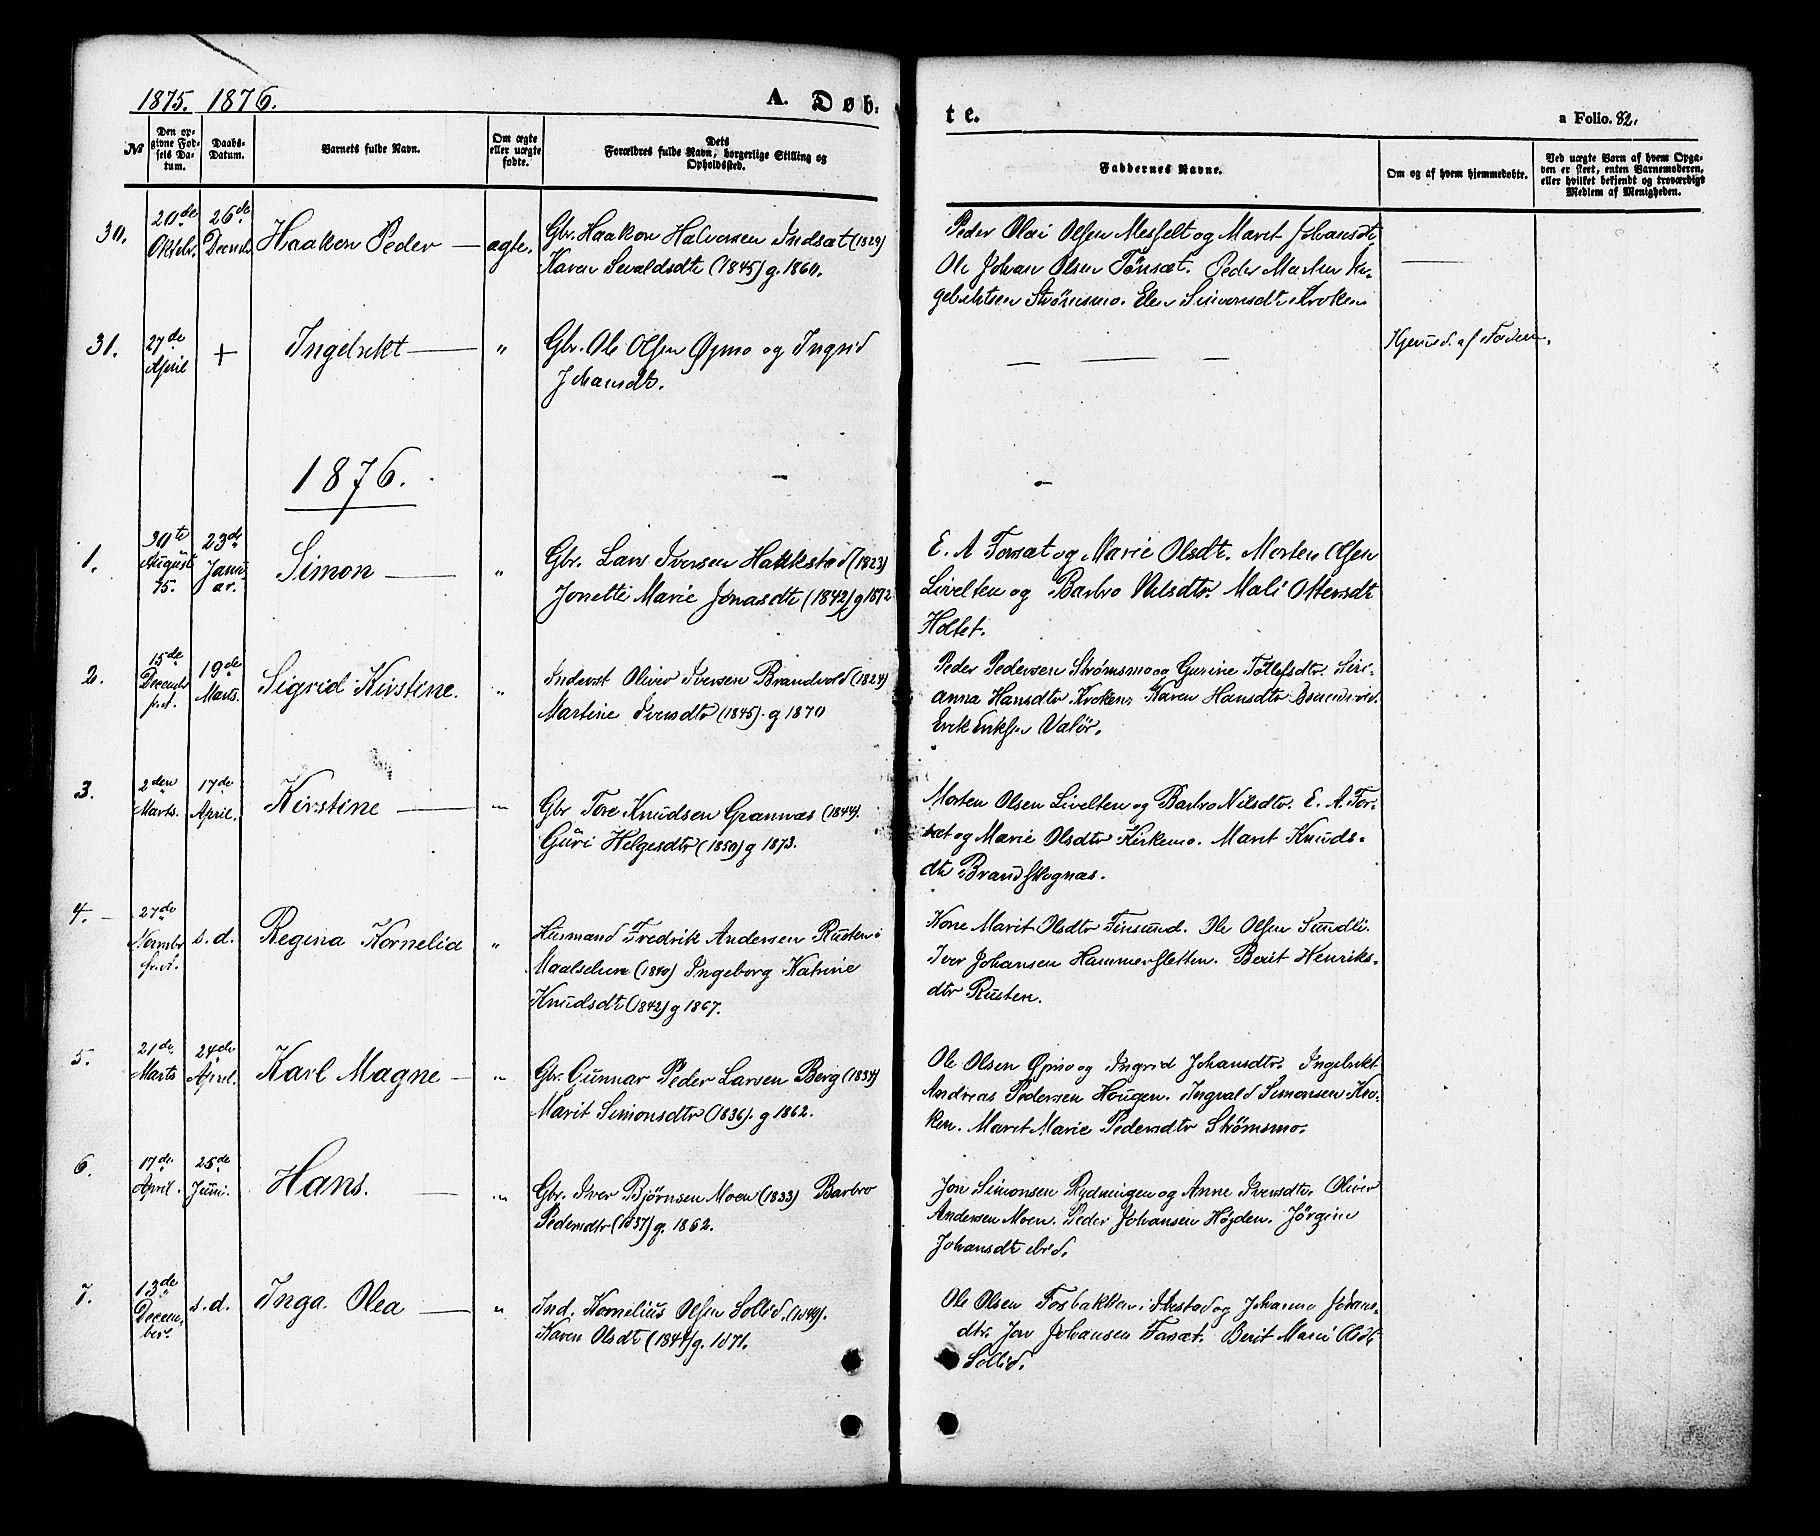 1875. 1876.
A. Døb-
te.
a Folio. 82.
№
Den op-
givne Fød-
sels Da-
tum.
Daabs-
Datum.
Barnets fulde Navn.
Om ægte
eller uægte
fødte.
Dets
Forældres fulde Navn, borgerlige Stilling og
Opholdssted.
Faddernes Navne.
Om og af hvem hjemmedøbte.
Ved uægte Børn af hvem Opga-
ven er skeet, enten Barnemoderen,
eller hvilket bekjendt og troværdigt
Medlem af Menigheden.
30.
20de
Oktobr.
26de
Decemb.
Haakon Peder
ægte.
Gbr. Haakon Halvorsen Indsæt (1829)
Karen Sevaldsdtr (1845) g. 1860.
Peder Olai Olsen Mesfelt og Maret Johansdtr
Ole Johan Olsen Tönsæt. Peder Martin In-
gebrektsen Strömsmo. Elen Simonsdtr Kroken.
31.
27de
April
+
Ingebrekt
"
Gbr. Ole Olsen Øpmo og Ingrid
Johansdtr.
Hjemmed. af Faderen.
1876.
1.
30te
August
75.
23de
Janu-
ar.
Simon
"
Gbr. Lars Iversen Hakkstad (1823)
Jonette Marie Jonasdtr (1842) g 1872
E. A Forsæt og Marie Olsdtr. Morten Olsen
Livelten og Barbro Nilsdtr. Mali Ottersdtr
Holtet.
2.
15de
Decembr
f.A.
19de
Marts.
Sigrid Kirstine.
"
Inderst Oliver Iversen Brandvold (1824)
Martine Iversdtr (1845). g 1870
Peder Pedersen Strømsmo og Gurine Tollefsdtr. Sire-
anna Hansdtr Kroken. Karen Hansdtr
Erik Eriksen Valör.
3.
2den
Marts.
17de
April.
Kirstine
"
Gbr Tore Knudsen Grannæs (1844).
Guri Helgesdtr (1850) g 1873.
Morten Olsen Livelten og Barbro Nilsdtr. E. A. For-
sæt og Marie Olsdtr Kirkemo. Marit Knuds-
dtr Brandskognæs.
4.
27de
Novembr
f.A.
s. d.
Regina Kornelia
"
Husmand Fredrik Andersen Rusten i
Maalselven (1840) Ingeborg Katrine
Knudsdtr (1842) g 1867.
Kone Marit Olsdtr Finsund. Ole Olsen Sundli.
Iver Johansen Hammersletten. Berit Henriks-
dtr Rusten.
5.
21de
Marts
24de
April.
Karl Magne
"
Gbr. Gunnar Peder Larsen Berg (1834)
Marit Simonsdtr (1836). g 1862.
Ole Olsen Øpmo og Ingrid Johansdtr. Ingebrekt
Andreas Pedersen Hougen. Ingvald Simonsen Kro-
ken. Maret Marie Pedersdtr Strømsmo.
6.
17de
April.
25de
Juni.
Hans.
"
Gbr. Iver Bjørnsen Moen (1833) Barbro
Pedersdtr (1837) g. 1862.
Jon Simonsen Rydningen og Anne Iversdtr. Oliver
Andersen Moen. Peder Johansen Högden. Jörgine
Johansdtr ibid.
7.
13de
Decem-
ber.
s. d.
Inga Olea
"
Ind. Kornelius Olsen Sollid. (1849).
Karen Olsdtr (1844) g. 1871.
Ole Olsen Fosbakken i Ibestad og Johanna Johans-
dtr. Jon Johansen Forsæt. Berit Marie Olsdtr
Sollid.